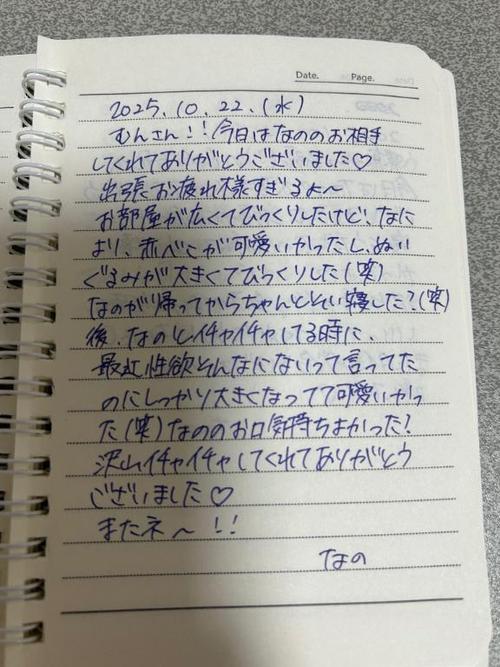 Date. Page.
2025.10.22.(水)
むんさん!!今日はなののお相手
してくれてありがとうございました♡
出張お疲れ様すぎるよ〜
お部屋が広くてびっくりしたけど、なに
より、赤べこが可愛いかったし、ぬい
ぐるみが大きくてびっくりした(笑)
なのが帰ってからちゃんとそい寝した?(笑)
後、なのとイチャイチャしてる時に、
最近性欲そんなにないって言ってた
のにしっかり大きくなってて可愛いかっ
た(笑)なののお口気持ちよかった?
沢山イチャイチャしてくれてありがとう
ございました♡
またネ〜!!
なの